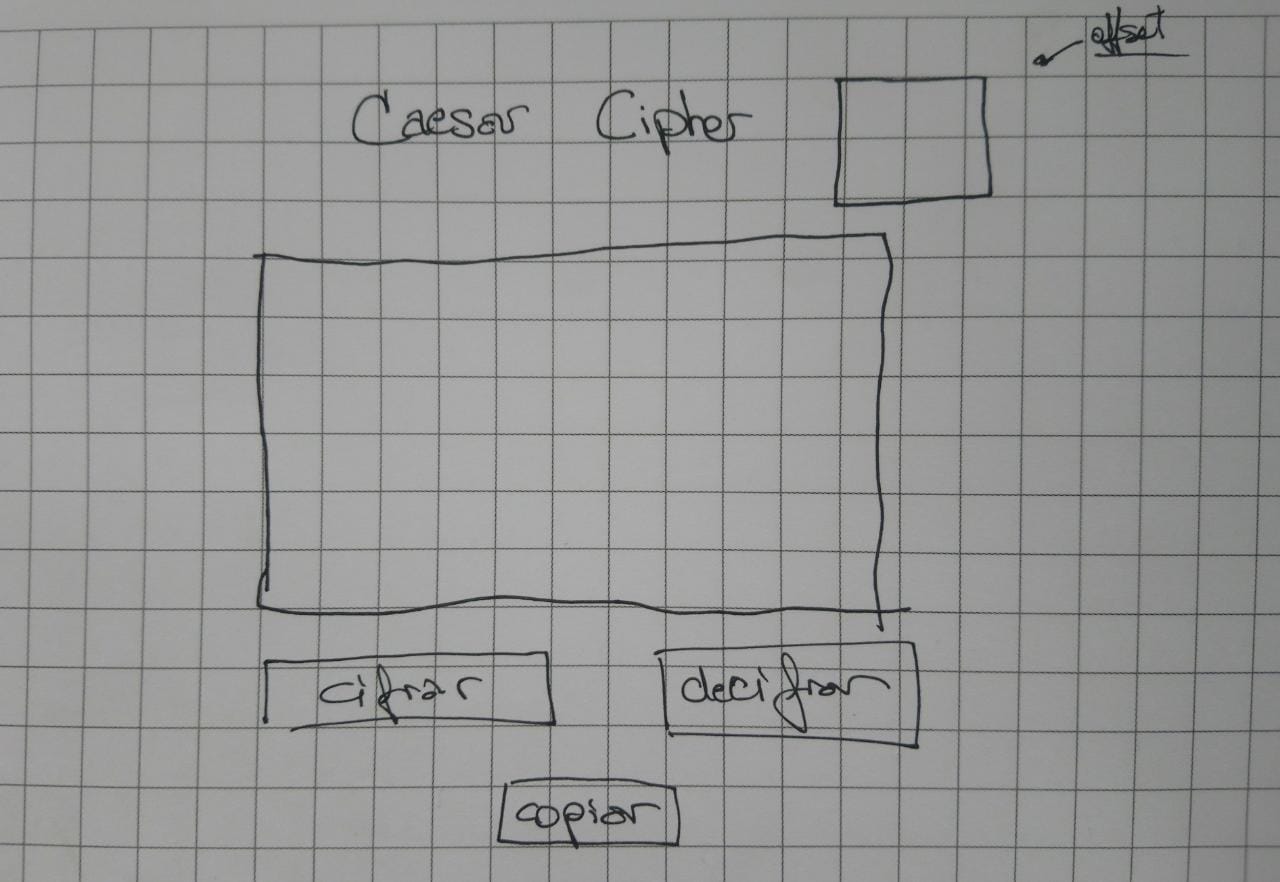 offset
Caesar Cipher
cifrar
decifrar
copiar